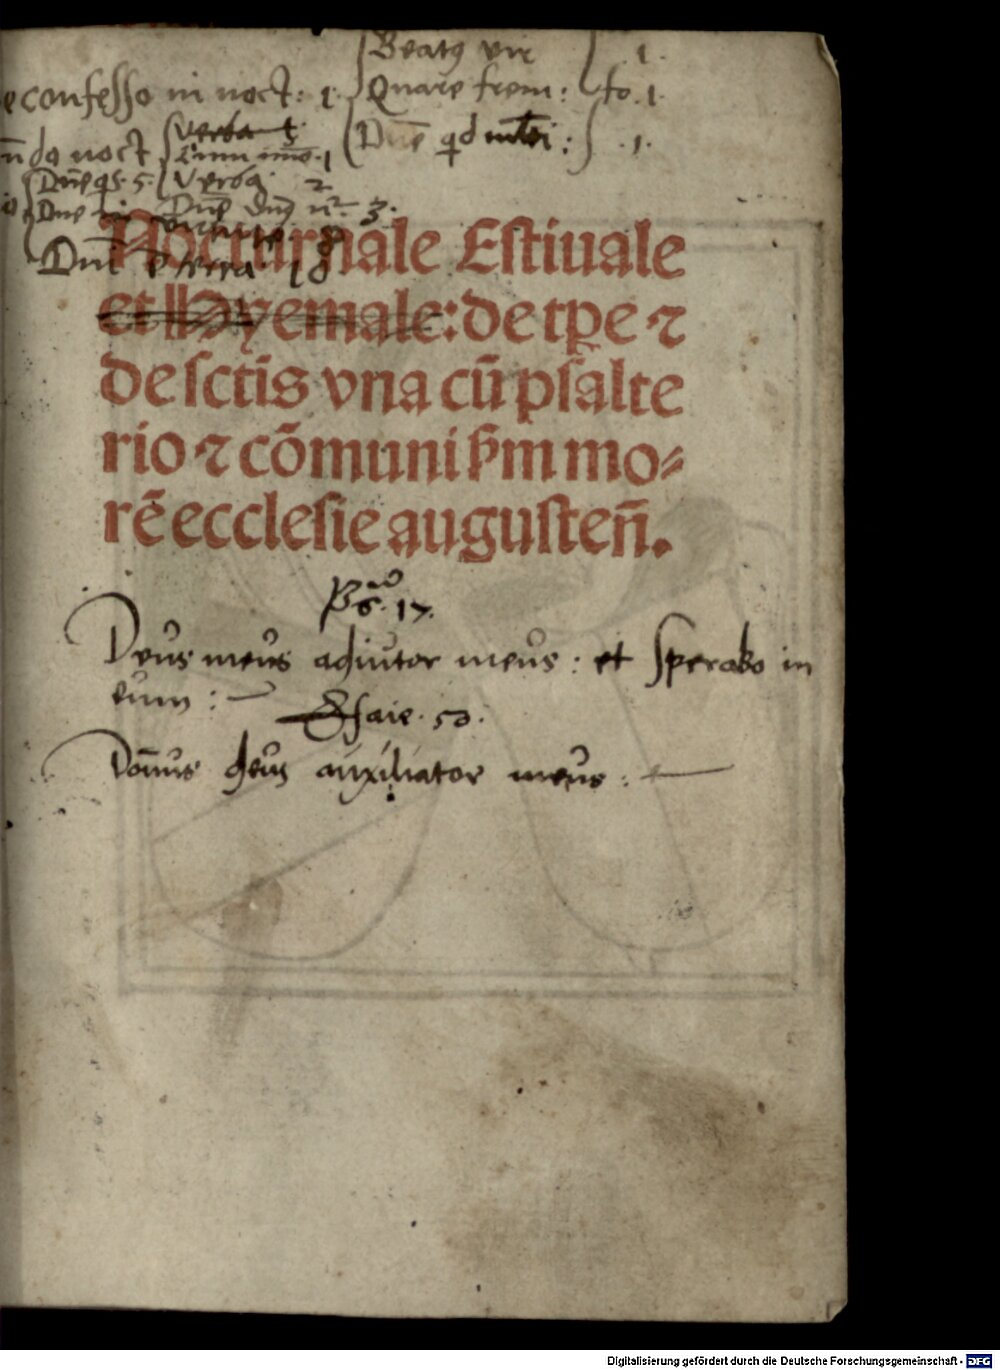 Beatꝰ vir } .1.
e confesso in noct: 1. { Quare frem: } fo .1.
Dn̄e qͥd mlti: } .1.
n̄do noct { Verba
Dn̄e 5. { Verba. 2
Dn̄e 3.
Nocturnale Estiuale
et Hyemale: de tp̄e ⁊
de sctīs vna cū psalte
rio ⁊ cōmuni ẜm mo⸗
rē ecclesie augusteñ.
Ps. 17.
Deus meus adiutor meus: et sperabo in
eum:
Esaie. 50.
Dom̄us deus auxiliator meus:
Digitalisierung gefördert durch die Deutsche Forschungsgemeinschaft - DFG